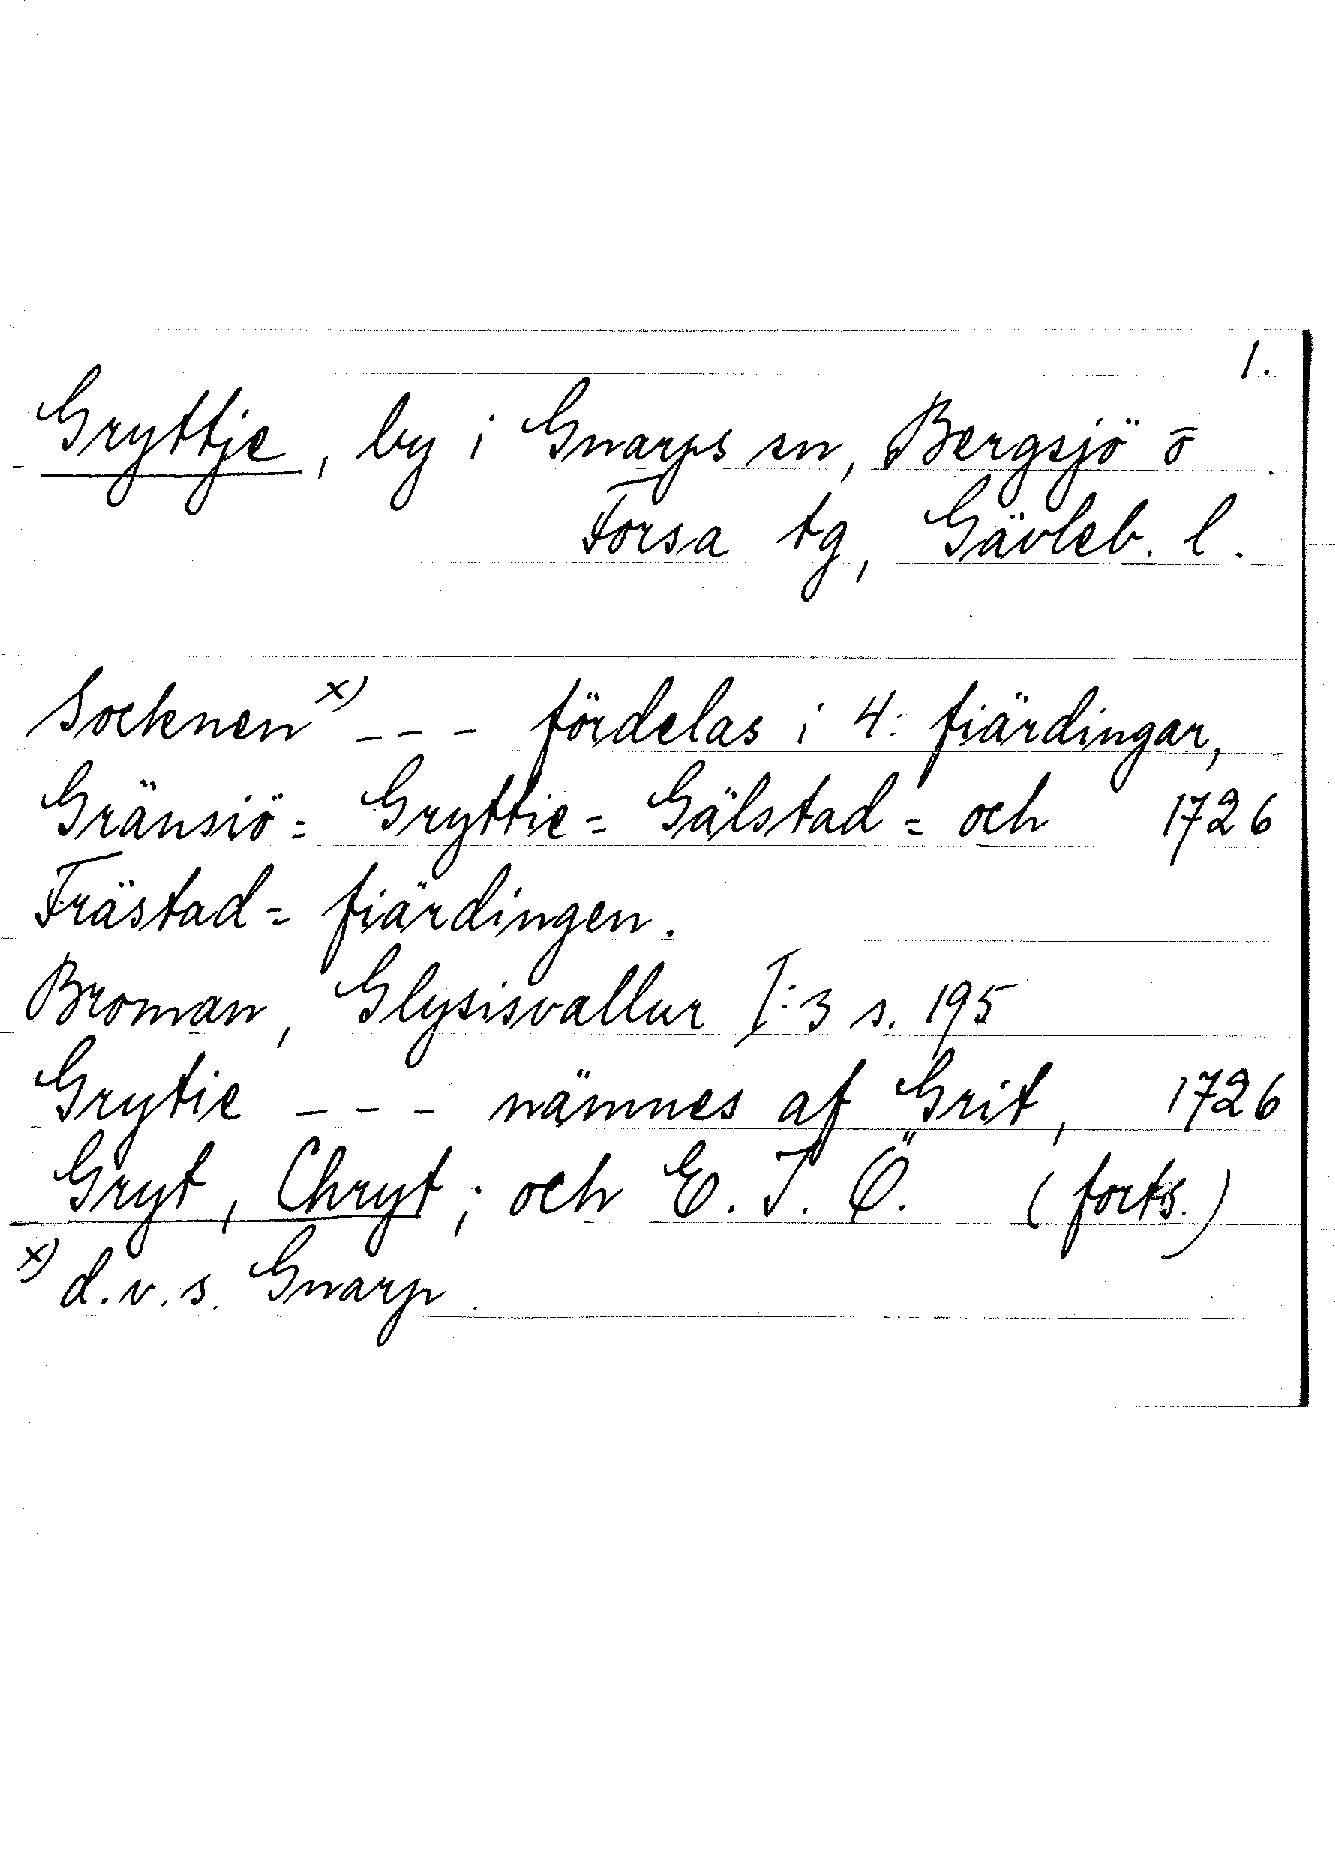 1.
Gryttje, by i Gnarps sn, Bergsjö o
Forsa tg, Gävleb. l.
Socknen x) - - - fördelas i 4: fiärdingar,
Gränsiö= Gryttie= Gälstad= och 1726
Frästad= fiärdingen.
Broman, Glysisvallur I:3 s. 195
Grytie - - - nämnes af Grit, 1726
Gryt, Chryt; och E. T. Ö. (forts.)
x) d.v.s. Gnarp.